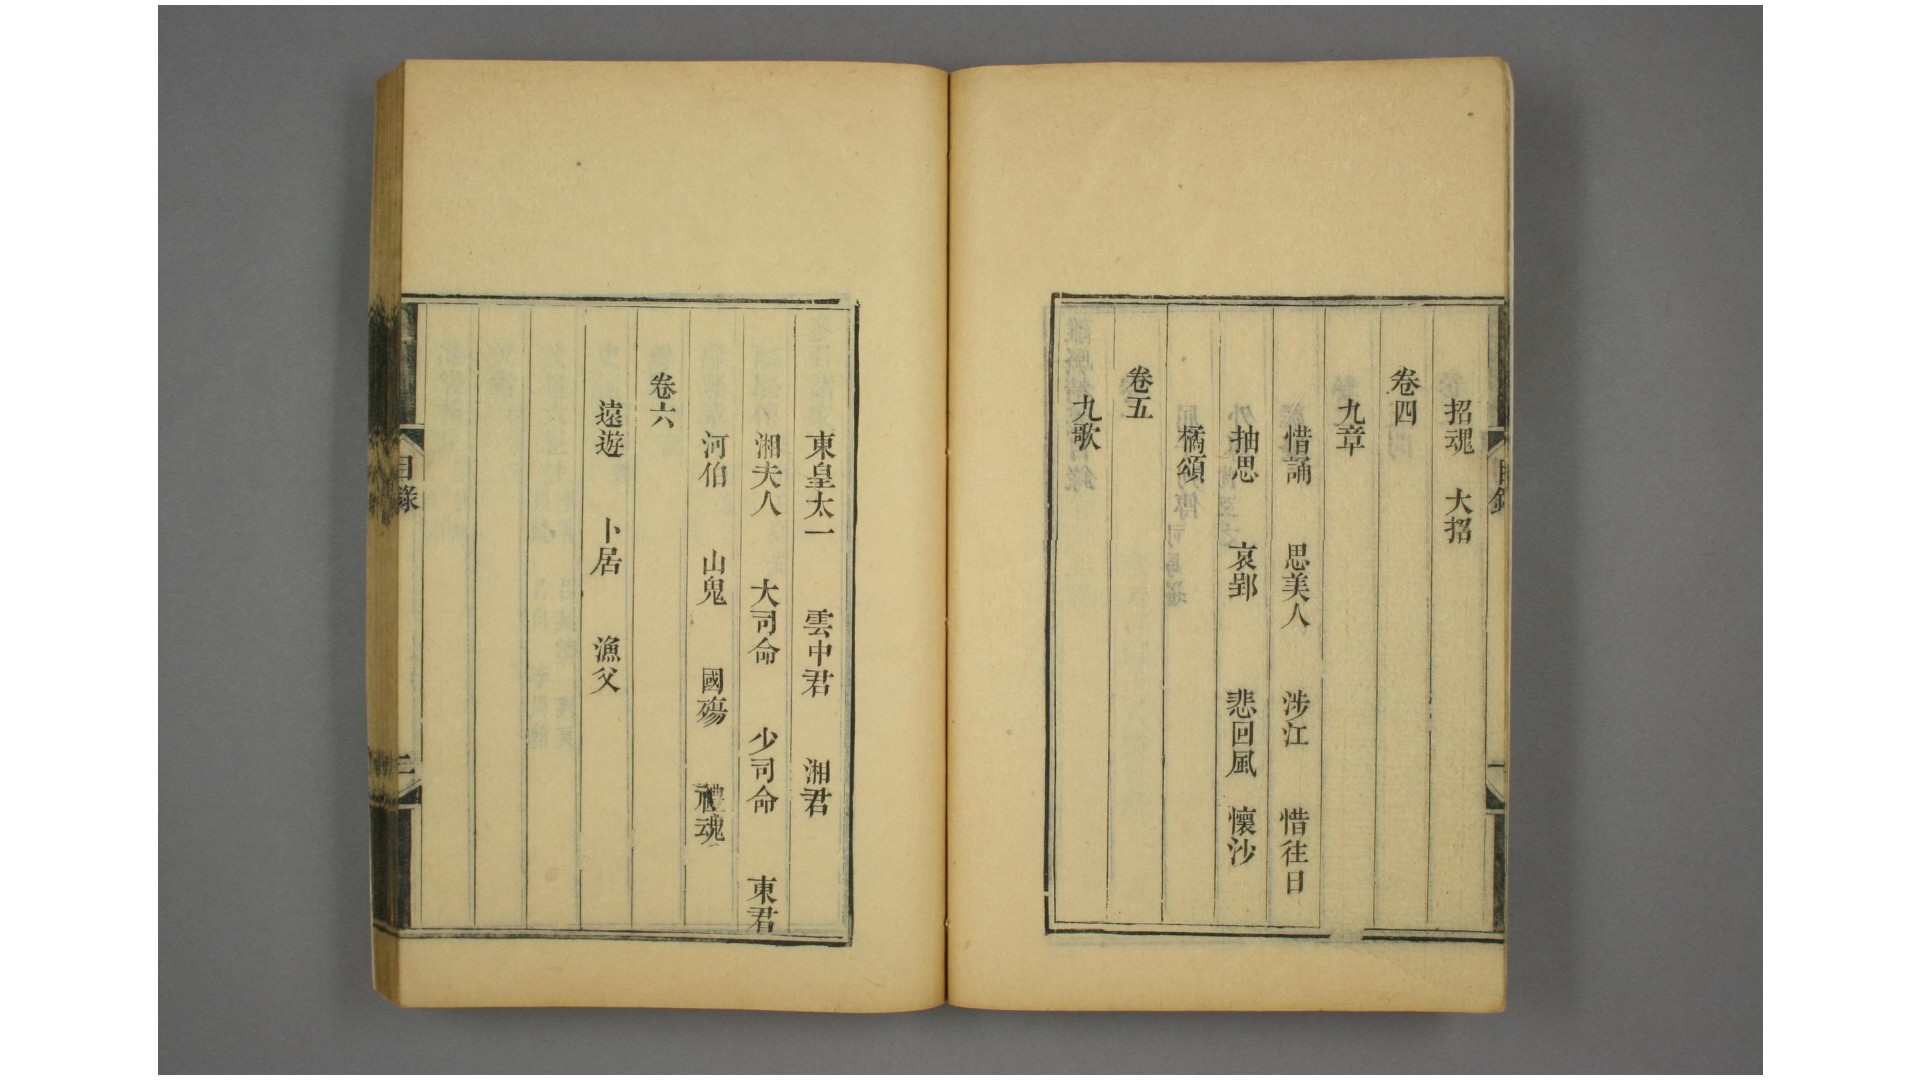 招魂 大招
卷四
九章
惜誦 思美人 涉江 惜往日
抽思 哀郢 悲回風 懷沙
橘頌
卷五
九歌
目錄
東皇太一 雲中君 湘君
湘夫人 大司命 少司命 東君
河伯 山鬼 國殤 禮魂
卷六
遠遊 卜居 漁父
目錄